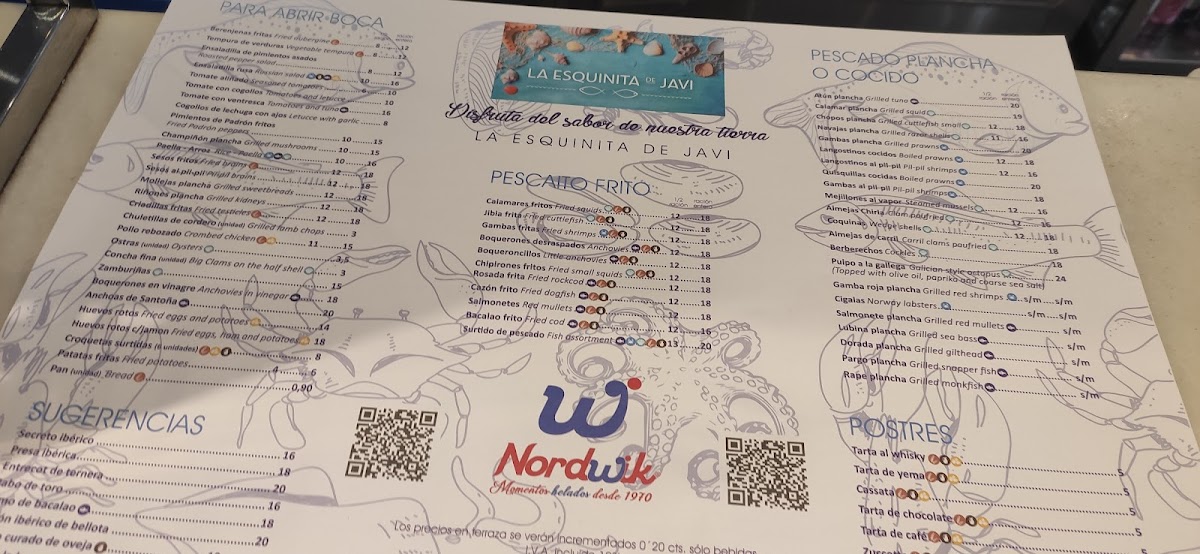 PARA ABRIR BOCA
ración
entera
Berenjenas fritas Fried aubergine 8 12
Tempura de verduras Vegetable tempura 8
Ensaladilla de pimientos asados
Roasted pepper salad 8 12
Ensaladilla rusa Russian salad 10 16
Tomate aliñado Seasoned tomatoes 6 10
Tomate con cogollos Tomatoes and lettuce 10
Tomate con ventresca Tomatoes and tuna 10
Cogollos de lechuga con ajos Letucce with garlic 8
Pimientos de Padrón fritos
Fried Padrón peppers 10 15
Champiñón plancha Grilled mushrooms 10 15
Paella - Arroz Rice - Paella 10 16
Sesos fritos Fried brains 12
Sesos al pil-pil Pil-pil brains 12 18
Mollejas plancha Grilled sweetbreads 12 16
Riñones plancha Grilled kidneys 12 18
Criadillas fritas Fried testicles 12 18
Chuletillas de cordero (unidad) Grilled lamb chops 3
Pollo rebozado Crombed chicken 11 15
Ostras (unidad) Oysters 3,5
Concha fina (unidad) Big Clams on the half shell 3
Zamburiñas 18
Boquerones en vinagre Anchovies in vinegar 18
Anchoas de Santoña 20
Huevos rotos Fried eggs and potatoes 14
Huevos rotos c/jamon Fried eggs, ham and potatoes 18
Croquetas surtidas (6 unidades) 8
Patatas fritas Fried potatoes 4 6
Pan (unidad) Bread 0,90
SUGERENCIAS
Secreto ibérico 16
Presa ibérica 18
Entrecot de ternera 20
de toro 16
de bacalao 18
ibérico de bellota 20
curado de oveja
LA ESQUINITA DE JAVI
Disfruta del sabor de nuestra tierra
LA ESQUINITA DE JAVI
PESCAITO FRITO
1/2 ración
ración entera
Calamares fritos Fried squids 12 18
Jibia frita Fried cuttlefish 12 18
Gambas fritas Fried shrimps 12 18
Boquerones desraspados Anchovies 12 18
Boqueroncillos Little anchovies 12 18
Chipirones fritos Fried small squids 12 18
Rosada frita Fried rockcod 12 18
Cazón frito Fried dogfish 12 18
Salmonetes Red mullets 12 18
Bacalao frito Fried cod 12 16
Surtido de pescado Fish assortment 13 20
Nordwik
Momentos helados desde 1970
Los precios en terraza se verán incrementados 0´20 cts. sólo bebidas
I.V.A. incluido
PESCADO PLANCHA
O COCIDO
1/2
ración
ración
entera
Atún plancha Grilled tuno 20
Calamar plancha Grilled squid 19
Chopos plancha Grilled cuttlefish small 12 18
Navajas plancha Grilled razor shells 11 16
Gambas plancha Grilled prawns 20
Langostinos cocidos Boiled prawns 12 18
Langostinos al pil-pil Pil-pil shrimps 12 16
Quisquillas cocidas Boiled prawns 20
Gambas al pil-pil Pil-pil shrimps 18
Mejillones al vapor Steamed mussels 12 16
Almejas China Clam paufried 12
Coquinas Wedge shells 12 18
Almejas de carril Carril clams paufried
Berberechos Cockles 18
Pulpo a la gallega Galician style octopus 24
(Topped with olive oil, paprika and coarse sea salt)
Gamba roja plancha Grilled red shrimps s/m s/m
Cigalas Norway lobsters s/m s/m
Salmonete plancha Grilled red mullets s/m
Lubina plancha Grilled sea bass s/m
Dorada plancha Grilled gilthead s/m
Pargo plancha Grilled snapper fish s/m
Rape plancha Grilled monkfish s/m
POSTRES
Tarta al whisky 5
Tarta de yema 5
Cassata 5
Tarta de chocolate 5
Tarta de café 5